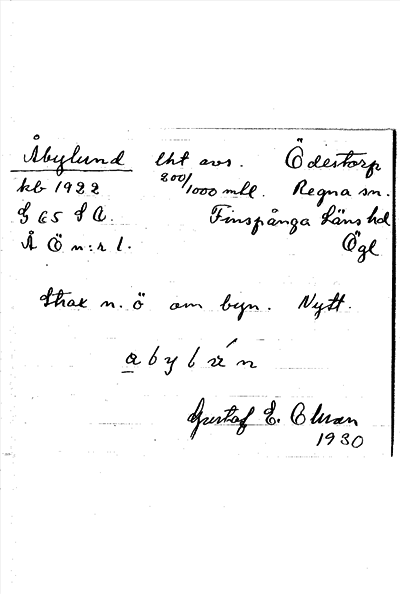 Åbylund lht avs. Ödestorp
kb 1922 200/1000 mtl. Regna sn.
G 65 S A. Finspånga läns hd
Å Ö n:r 1. Ögl
Strax n. ö om byn. Nytt.
Gustaf E. Olman
1930